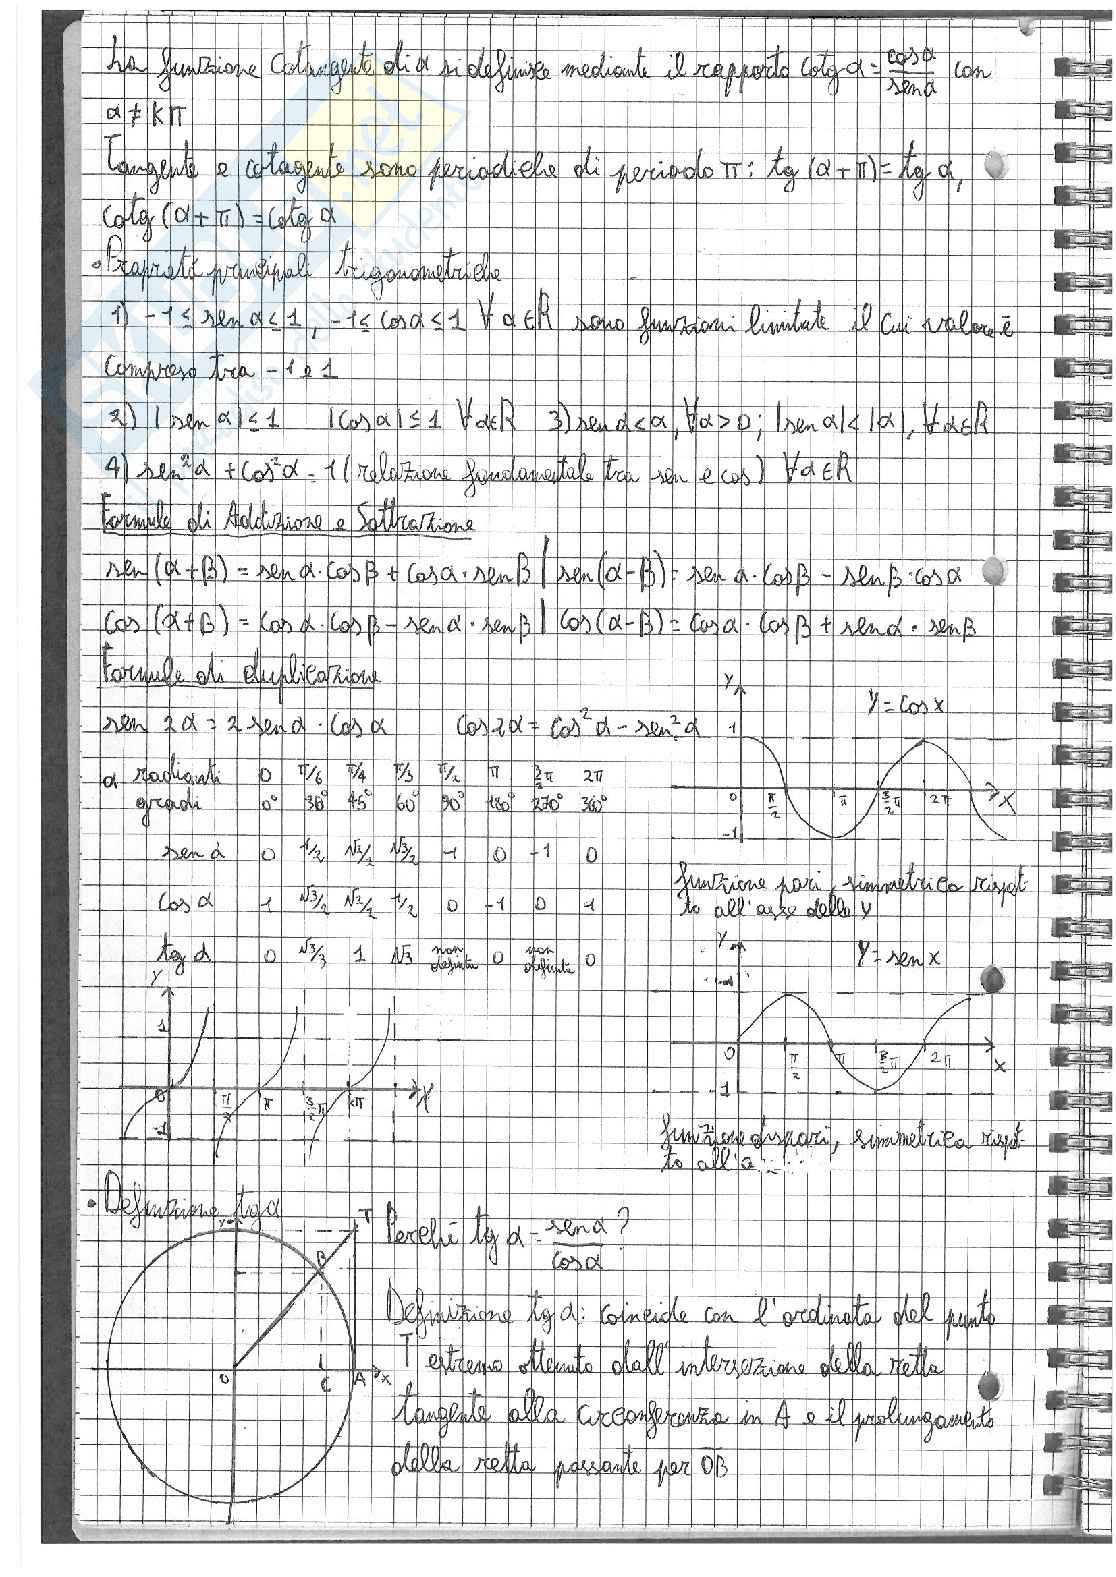 La funzione Cotangente di α si definisce mediante il rapporto cotg α = cosα/senα con
α ≠ kπ
Tangente e cotagente sono periodiche di periodo π: tg (α+π) = tg α,
cotg (α+π) = cotg α
• Proprietà principali trigonometriche
1) -1 ≤ sen α ≤ 1, -1 ≤ cosα ≤ 1 ∀ α∈R sono funzioni limitate il cui valore è
compreso tra -1 e 1
2) |sen α| ≤ 1 |cosα| ≤ 1 ∀α∈R 3) senα < α, ∀α > 0; |sen α| < |α|, ∀α∈R
4) sen²α + cos²α = 1 (relazione fondamentale tra sen e cos) ∀α∈R
Formule di Addizione e Sottrazione
sen (α+β) = sen α · cosβ + cosα · senβ | sen(α-β) = sen α · cosβ - senβ · cosα
cos (α+β) = cosα · cosβ - senα · senβ | cos(α-β) = cosα · cosβ + senα · senβ
Formule di duplicazione
sen 2α = 2 senα · cos α cos2α = cos²α - sen²α
α radianti 0 π/6 π/4 π/3 π/2 π 3/2π 2π
gradi 0° 30° 45° 60° 90° 180° 270° 360°
sen α 0 1/2 √2/2 √3/2 1 0 -1 0
cos α 1 √3/2 √2/2 1/2 0 -1 0 1
tg α 0 √3/3 1 √3 non definita 0 non definita 0
y
1
y = cos x
0 π/2 π 3/2π 2π x
-1
funzione pari, simmetrica rispet
to all'asse delle y
y
y = sen x
0 π/2 π 3/2π 2π x
-1
funzione dispari, simmetrica rispet
to all'
y
1
0 π/2 π 3/2π x
-1
• Definizione tgα
y T
B
O C A x
Perché tg α = senα/cosα?
Definizione tg α: coincide con l'ordinata del punto
T estremo ottenuto dall'intersezione della retta
tangente alla circonferenza in A e il prolungamento
della retta passante per OB